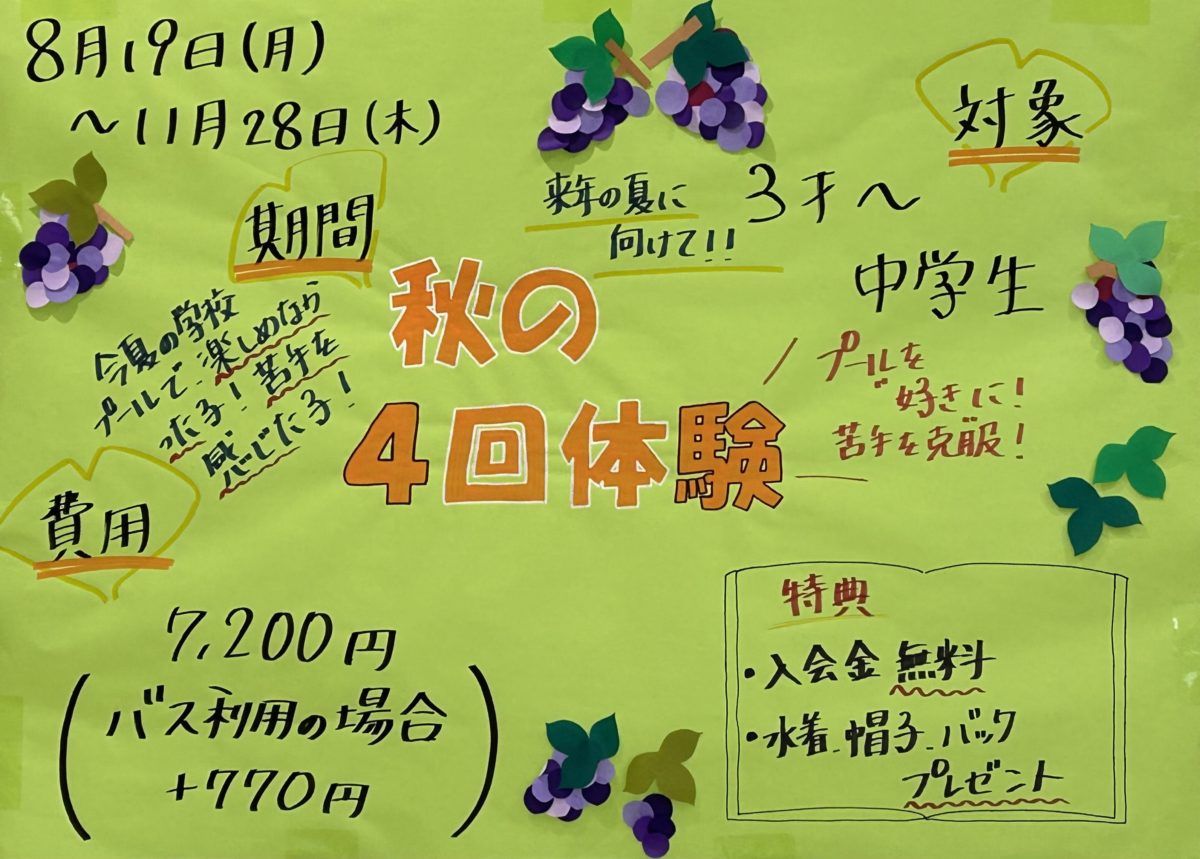 8月19日(月)
～11月28日(木)
期間
対象
3才～
中学生
来年の夏に
向けて!!
秋の
4回体験
今夏の学校
プールで、楽しめなか
った子！苦手を
感じた子！
プールを
好きに！
苦手を克服！
費用
7,200円
(バス利用の場合
+770円)
特典
・入会金無料
・水着、帽子、バック
プレゼント